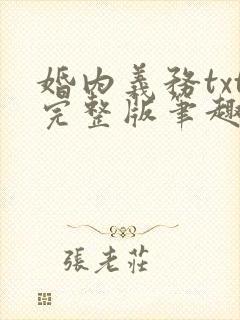 婚內義務txt
完整版筆趣
張老莊